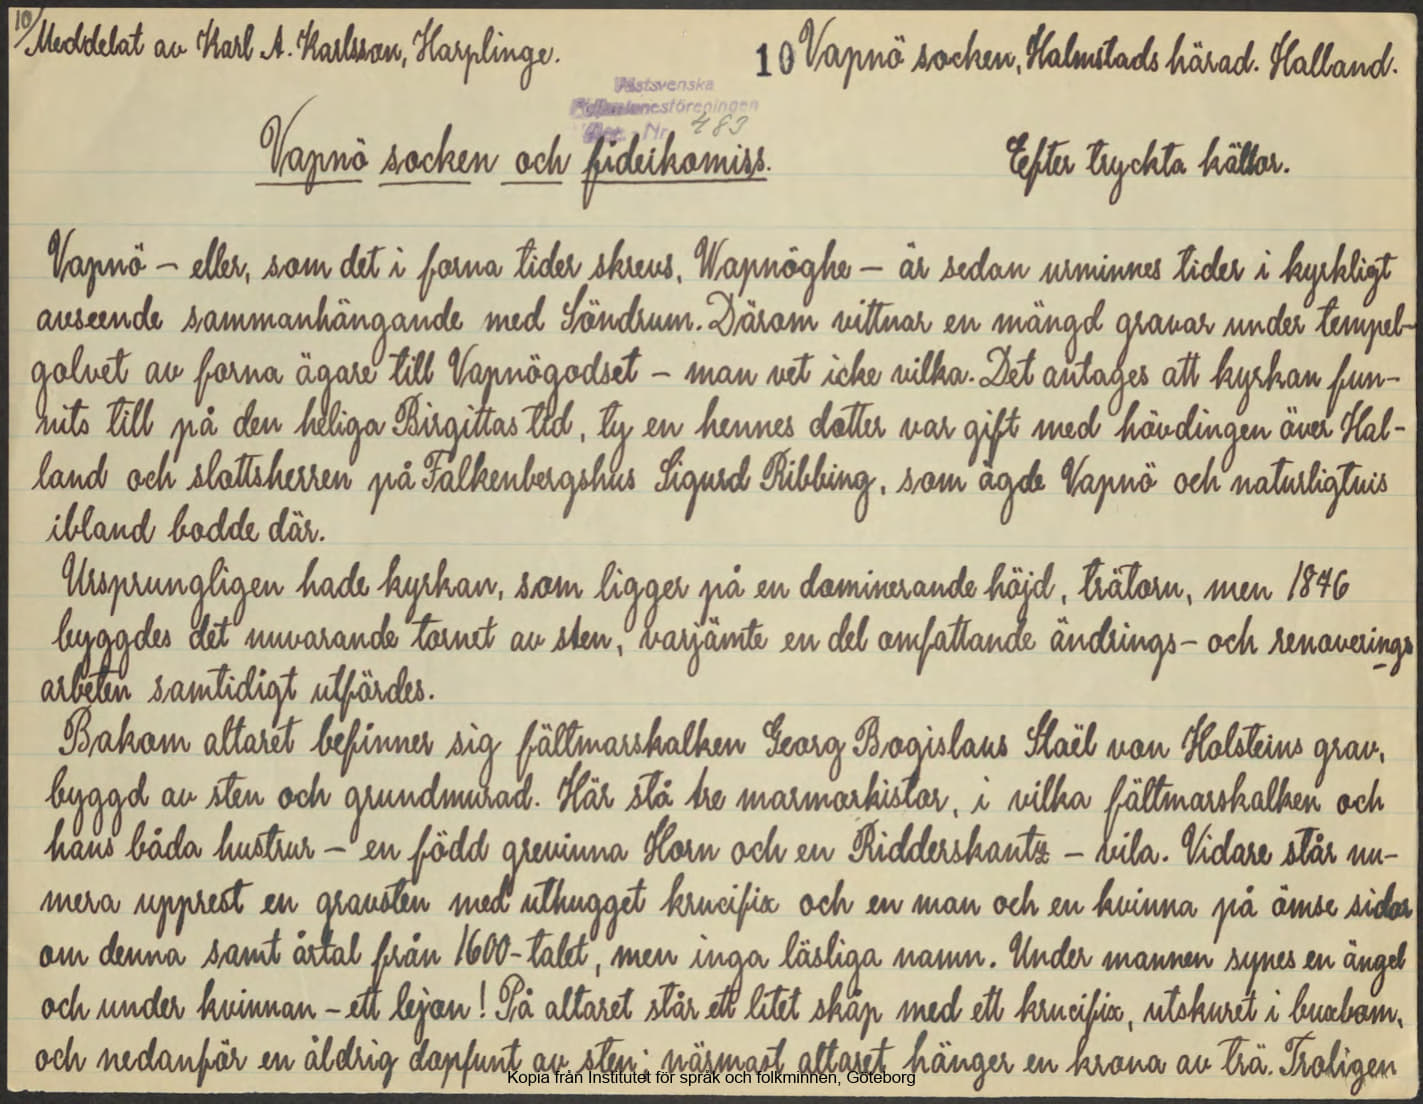 10/
Meddelat av Karl A. Karlsson, Harplinge.
10 Vapnö socken, Halmstads härad. Halland.
Västsvenska
Folkminnesföreningen
Acc. Nr. 483
Vapnö socken och fideikomiss.
Efter tryckta källor.
Vapnö – eller, som det i forna tider skrevs, Wapnöghe – är sedan urminnes tider i kyrkligt
avseende sammanhängande med Söndrum. Därom vittnar en mängd gravar under tempel-
golvet av forna ägare till Vapnögodset – man vet icke vilka. Det antages att kyrkan fun-
nits till på den heliga Birgittas tid, ty en hennes dotter var gift med hövdingen över Hal-
land och slottsherren på Falkenbergshus Sigurd Ribbing, som ägde Vapnö och naturligtvis
ibland bodde där.
Ursprungligen hade kyrkan, som ligger på en dominerande höjd, trätorn, men 1846
byggdes det nuvarande tornet av sten, varjämte en del omfattande ändrings- och renoverings
arbeten samtidigt utfördes.
Bakom altaret befinner sig fältmarskalken Georg Bogislaus Staël von Holsteins grav,
byggd av sten och grundmurad. Här stå tre marmorkistor, i vilka fältmarskalken och
hans båda hustrur – en född grevinna Horn och en Ridderskantz – vila. Vidare står nu-
mera upprest en gravsten med uthugget krucifix och en man och en kvinna på ömse sidor
om denna samt årtal från 1600-talet, men inga läsliga namn. Under mannen synes en ängel
och under kvinnan – ett lejon! På altaret står ett litet skåp med ett krucifix, utskuret i buxbom,
och nedanför en åldrig dopfunt av sten; närmast altaret hänger en krona av trä. Troligen
Kopia från Institutet för språk och folkminnen, Göteborg